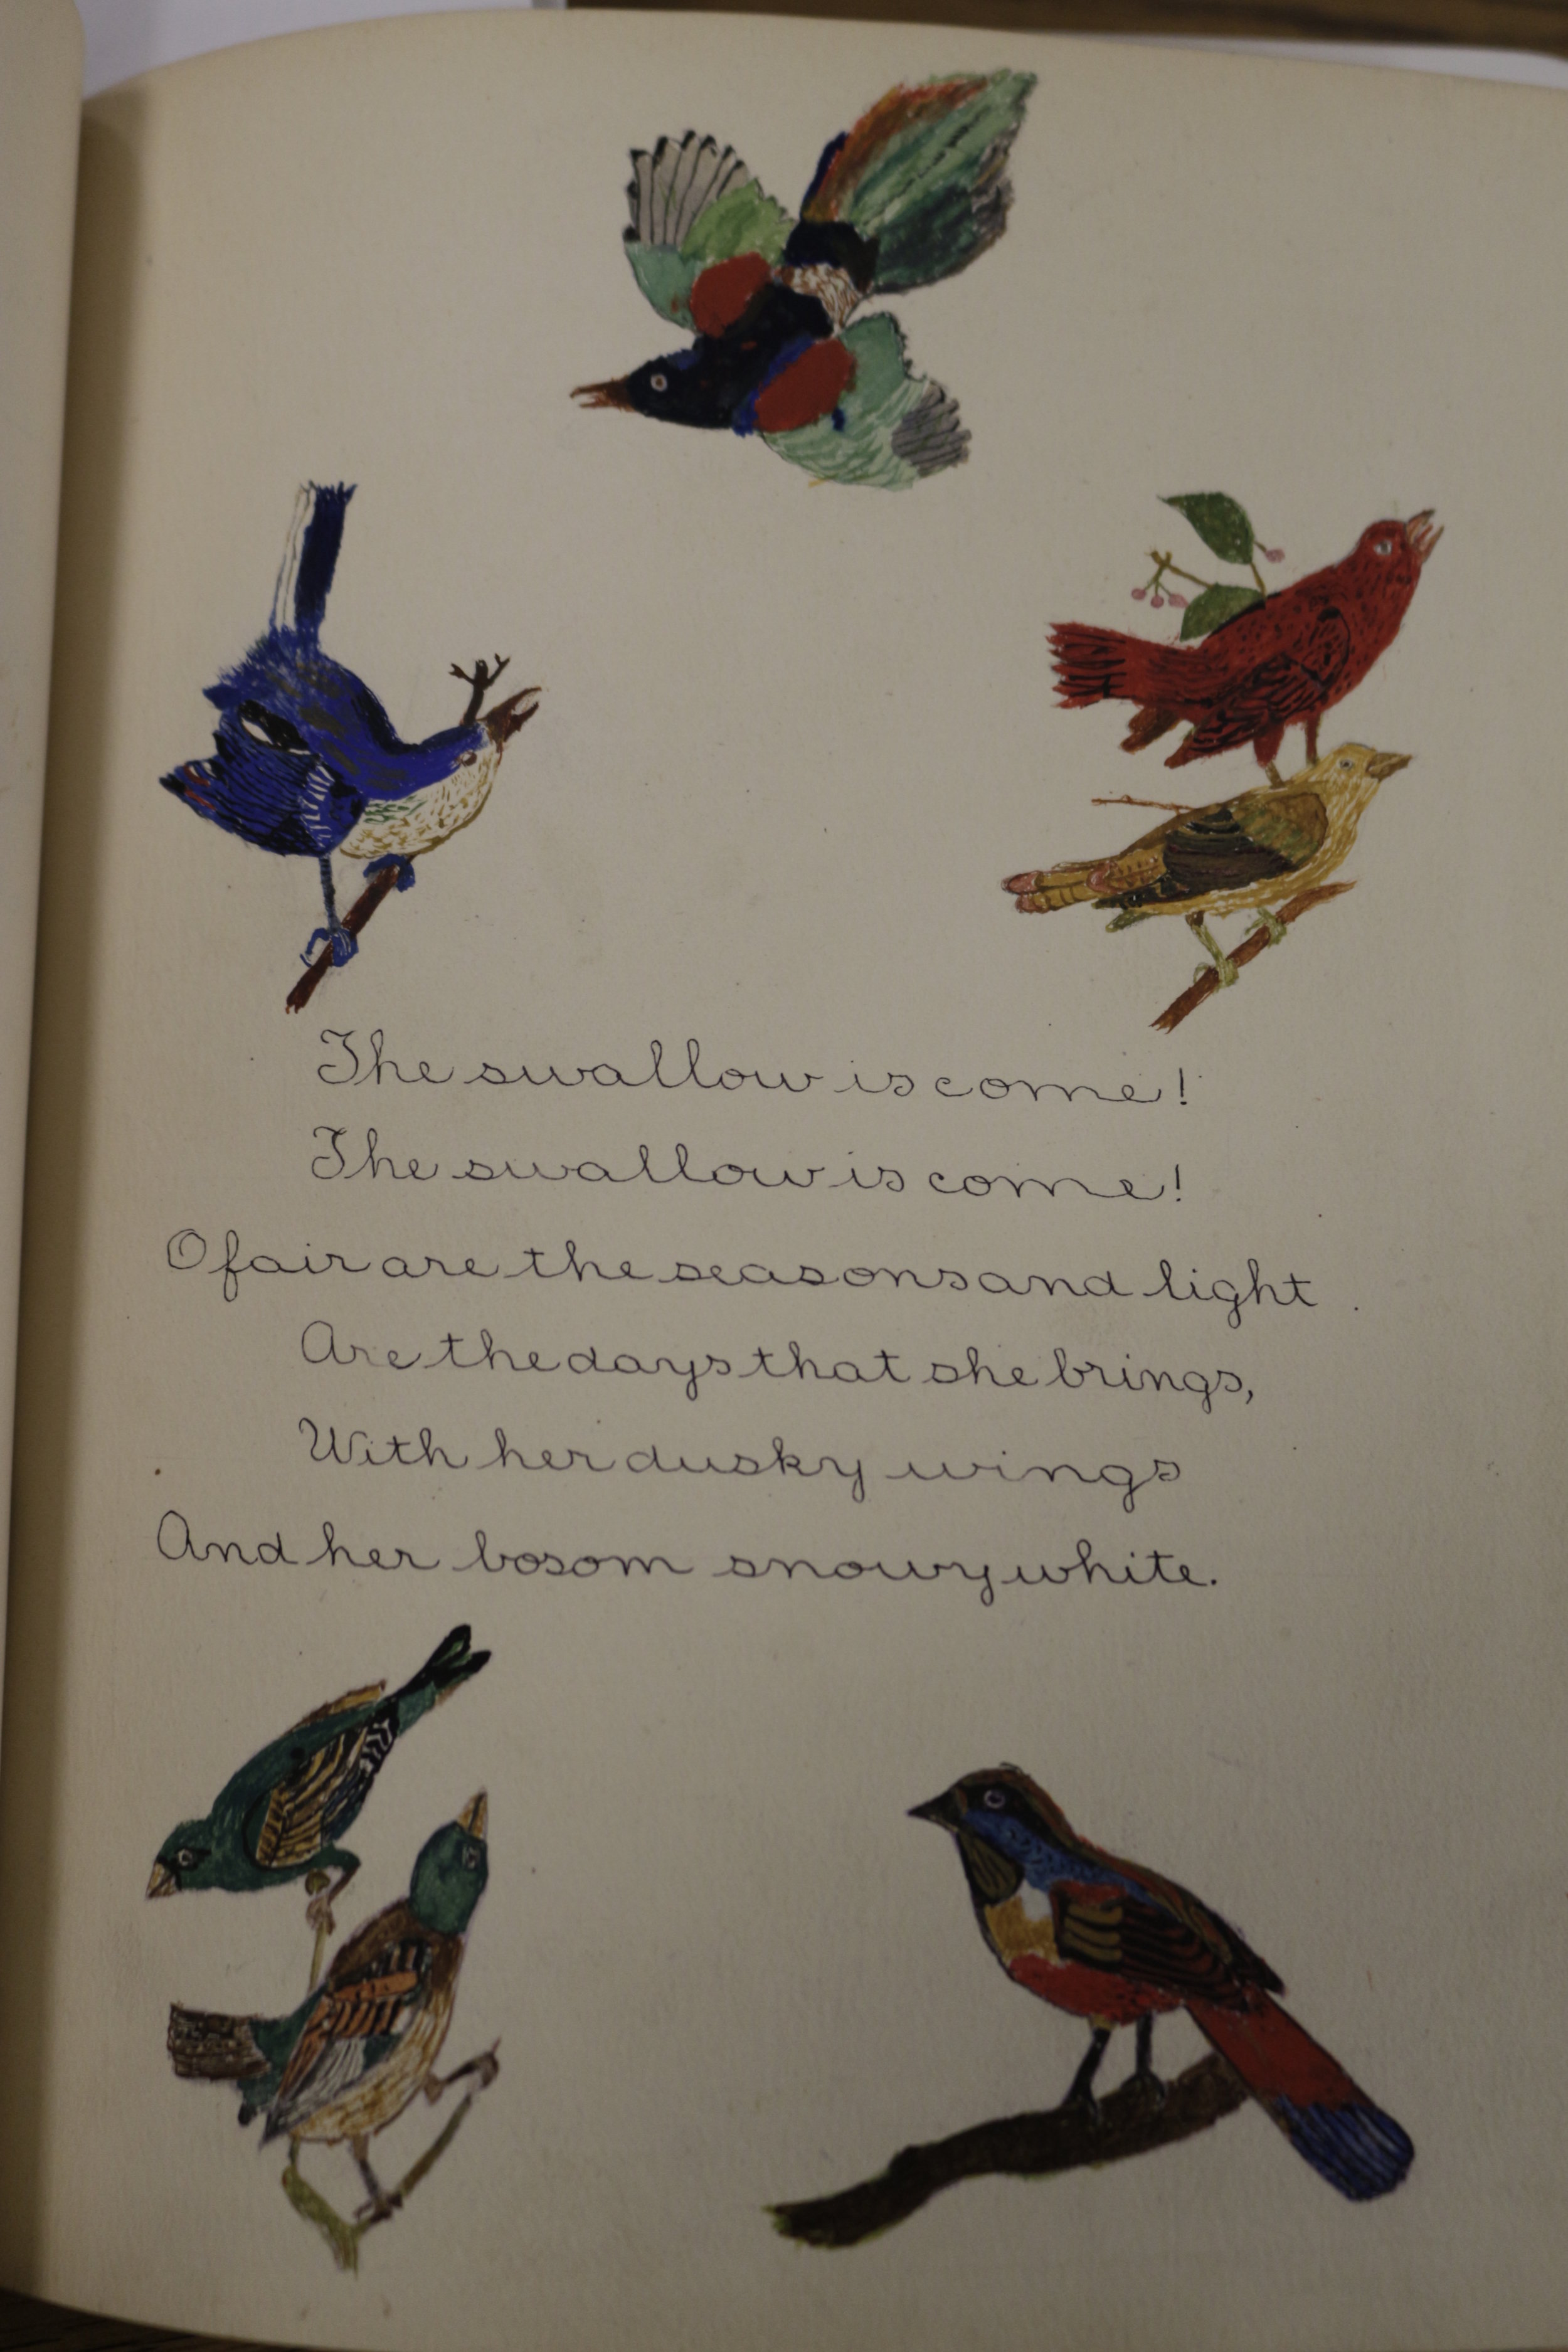 The swallow is come!
The swallow is come!
O fair are the seasons and light
Are the days that she brings,
With her dusky wings
And her bosom snowy white.